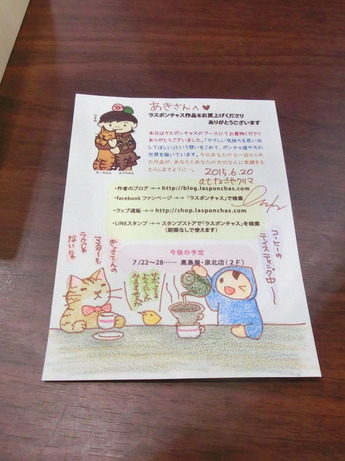 あきさんへ
ラスポンチャス作品をお買上げくださり
ありがとうございます
本日はラスポンチャスのブースにてお買物くださり
ありがとうございました。「やさしい気持ちを思い出
してほしい」という想いをこめて、ポンチャ達やその
世界を描いています。今日あなたの元へ迎えられ
た作品が、あなたとあなたの大切な人に笑顔をも
たらしますように…。
2015.6.20
・作者のブログ →→ http://blog.lasponchas.com
・facebook ファンページ →→「ラスポンチャス」で検索
・ウェブ通販 →→ http://shop.lasponchas.com
・LINEスタンプ →→ スタンプストアで「ラスポンチャス」を検索
今後の予定
7/22〜28…… 髙島屋・泉北店(2F)
コーヒーの
テイスティング中〜